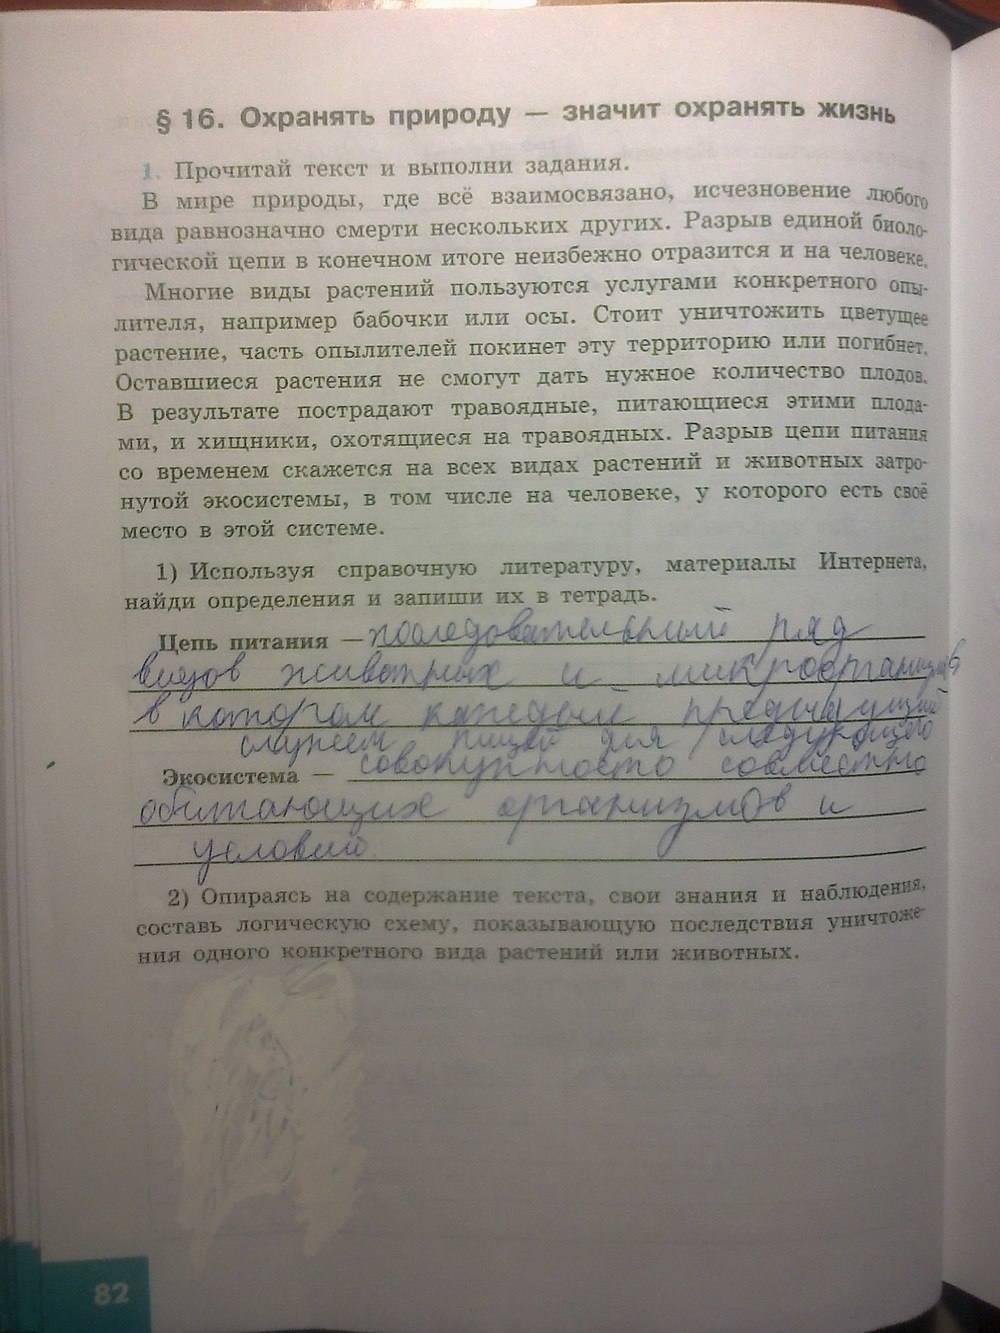 § 16. Охранять природу — значит охранять жизнь
1. Прочитай текст и выполни задания.
В мире природы, где всё взаимосвязано, исчезновение любого
вида равнозначно смерти нескольких других. Разрыв единой биоло-
гической цепи в конечном итоге неизбежно отразится и на человеке.
Многие виды растений пользуются услугами конкретного опы-
лителя, например бабочки или осы. Стоит уничтожить цветущее
растение, часть опылителей покинет эту территорию или погибнет.
Оставшиеся растения не смогут дать нужное количество плодов.
В результате пострадают травоядные, питающиеся этими плода-
ми, и хищники, охотящиеся на травоядных. Разрыв цепи питания
со временем скажется на всех видах растений и животных затро-
нутой экосистемы, в том числе на человеке, у которого есть своё
место в этой системе.
1) Используя справочную литературу, материалы Интернета,
найди определения и запиши их в тетрадь.
Цепь питания — последовательный ряд
видов животных и микроорганизмов
в котором каждый предыдущий
служит пищей для следующего
Экосистема — совокупность совместно
обитающих организмов и
условий
2) Опираясь на содержание текста, свои знания и наблюдения,
составь логическую схему, показывающую последствия уничтоже-
ния одного конкретного вида растений или животных.
82